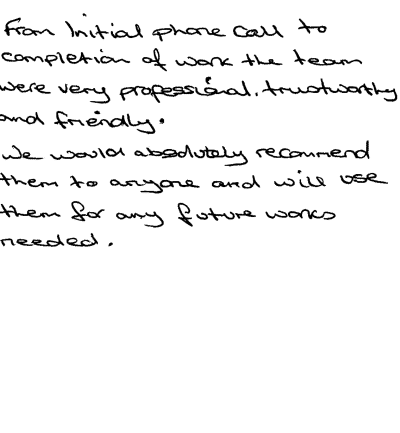 From Initial phone call to
completion of work the team
were very professional, trustworthy
and friendly.
We would absolutely recommend
them to anyone and will use
them for any future works
needed.